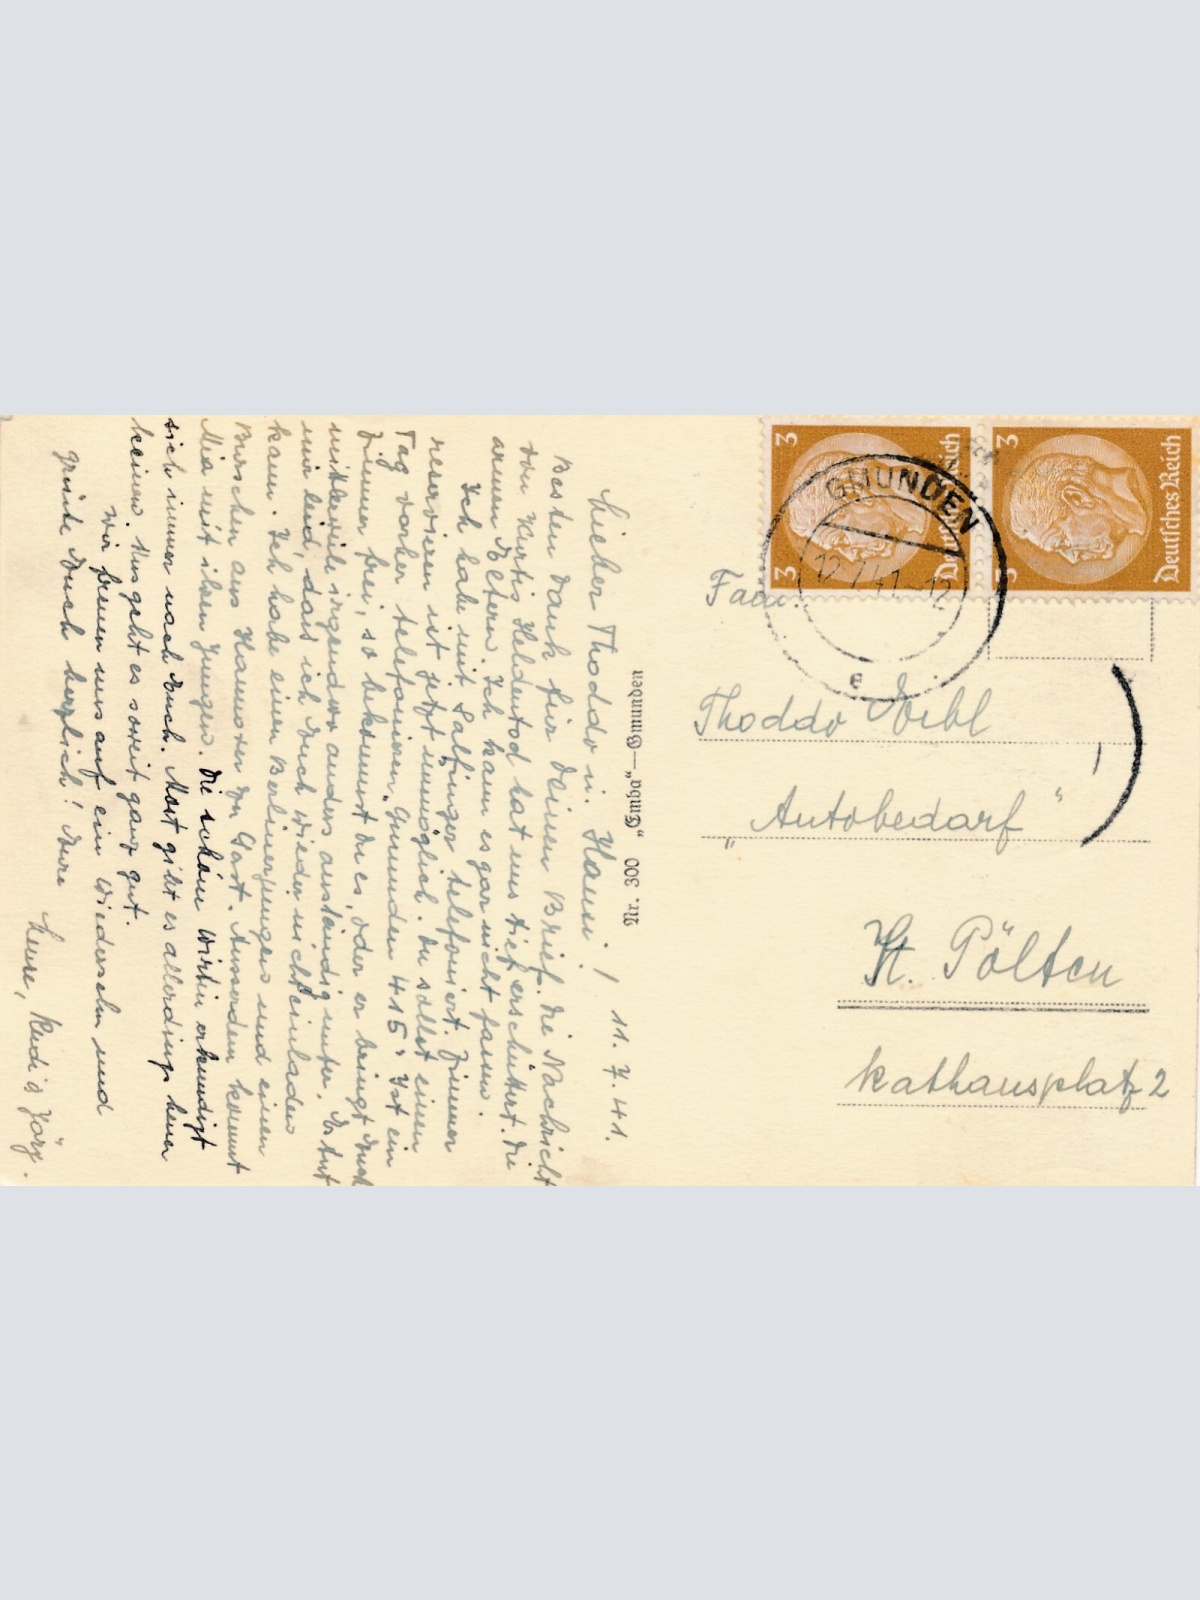 11. 7. 41.
Lieber Thoddo u. Hansi!
Besten Dank für Deinen Brief. Die Nachricht
von Kurtis Heldentod hat uns tief erschüttert. Die
armen Eltern. Ich kann es gar nicht fassen.
Ich habe mit Salfinger telefoniert. Zimmer
reservieren ist jetzt unmöglich. Du sollst einen
Tag vorher telefonieren, Gmunden 415. Ist ein
Zimmer frei, so bekommst Du es, oder er bringt Euch
mittlerweile irgendwo anders anständig unter. Es tut
mir leid, dass ich Euch wieder nicht einladen
kann. Ich habe einen Berlinerjungen und einen
Burschen aus Hannover zu Gast. Ausserdem kommt
Mia mit ihren Jungen. Die schöne Wirtin erkundigt
sich immer nach Euch. Most gibt es allerdings heuer
keinen. Uns geht es soweit ganz gut.
Wir freuen uns auf ein Wiedersehn und
grüsse Euch herzlich! Eure
Jörg.
Nr. 300 "Emba"—Gmunden
3
3
Deutsches Reich
3
3
Deutsches Reich
GMUNDEN
12.7.41-12
Fam.
Thoddo
„Autobedarf“
St. Pölten
Rathausplatz 2